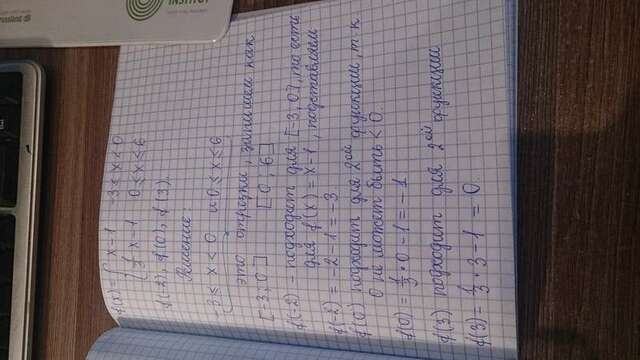 f(x) = { x-1 -3 ≤ x < 0
{ 1/3 x-1 0 ≤ x ≤ 6
f(-2), f(0), f(3).
Решение:
-3 ≤ x < 0 и 0 ≤ x ≤ 6
это отрезки, запишем как
[-3; 0] [0; 6]
f(-2) - подходит для [-3; 0], то есть
для f(x) = x-1, подставляем
f(-2) = -2-1 = -3
f(0) подходит для 2ой функции, т.к
0 не может быть < 0
f(0) = 1/3 · 0 - 1 = -1
f(3) подходит для 2ой функции
f(3) = 1/3 · 3 - 1 = 0